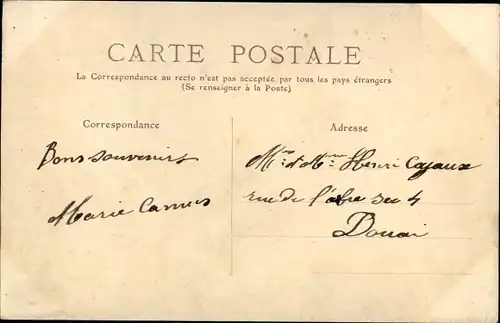 CARTE POSTALE
La Correspondance au recto n'est pas acceptée par tous les pays étrangers
(Se renseigner à la Poste)
Correspondance
Adresse
Bons souvenirs
Marie Camus
Mr et Mme Henri
rue de l'abre sec 4
Douai